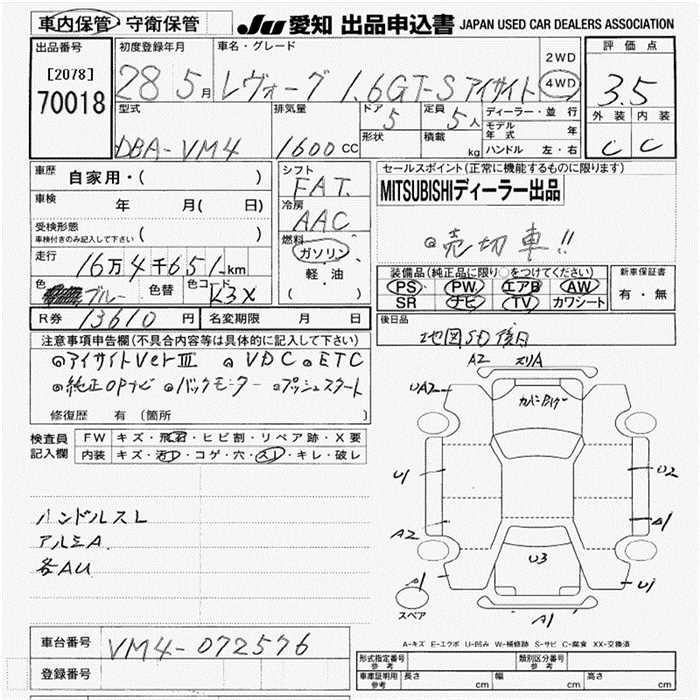 車内保管・守衛保管 JU 愛知 出品申込書 JAPAN USED CAR DEALERS ASSOCIATION
出品番号 初度登録年月 車名・グレード 評価点
[2078] 28 5月 レヴォーグ 1.6GT-S アイサイト 2WD 4WD 3.5
70018
型式 排気量 ドア 5 定員 5人 ディーラー・並行 外装 内装
DBA-VM4 1600cc 形状 積載 kg モデル年式 年 C C
ハンドル 左・右
車歴 自家用・( ) シフト セールスポイント(正常に機能するものに限ります)
FAT. MITSUBISHIディーラー出品
車検 年 月( 日) 冷房
AAC
受検形態 @売切車!!
車検付きのみ記入して下さい ( ) 燃料
走行 16万4千651km ガソリン 装備品(純正品に限り○をつけてください) 新車保証書
軽・油 PS PW エアB AW 有・無
色 ブルー 色替 色コード K3X ( ) SR ナビ TV カワシート
R券 13610円 名変期限 月 日 後日品
地図SD後日
注意事項申告欄(不具合内容等は具体的に記入して下さい)
@アイサイトVerⅢ @VDC @ETC
@純正OPナビ @バックモニター @プッシュスタート
修復歴 有(箇所 )
検査員記入欄 FW キズ・飛石・ヒビ割・リペア跡・X要
内装 キズ・汚れ・コゲ・穴・スレ・キレ・破レ
A2 スリA
UA2
U1 U2
A2 A1
U3
A1 U1
スペア A1
ハンドルスレ
アルミA
各AU
A-キズ E-エクボ U-凹み W-補修跡 S-サビ C-腐食 XX-交換済
車台番号 VM4-072576
登録番号
形式指定番号 参考 類別区分番号 参考
車庫証明用 参考 長さ cm 幅 cm 高さ cm